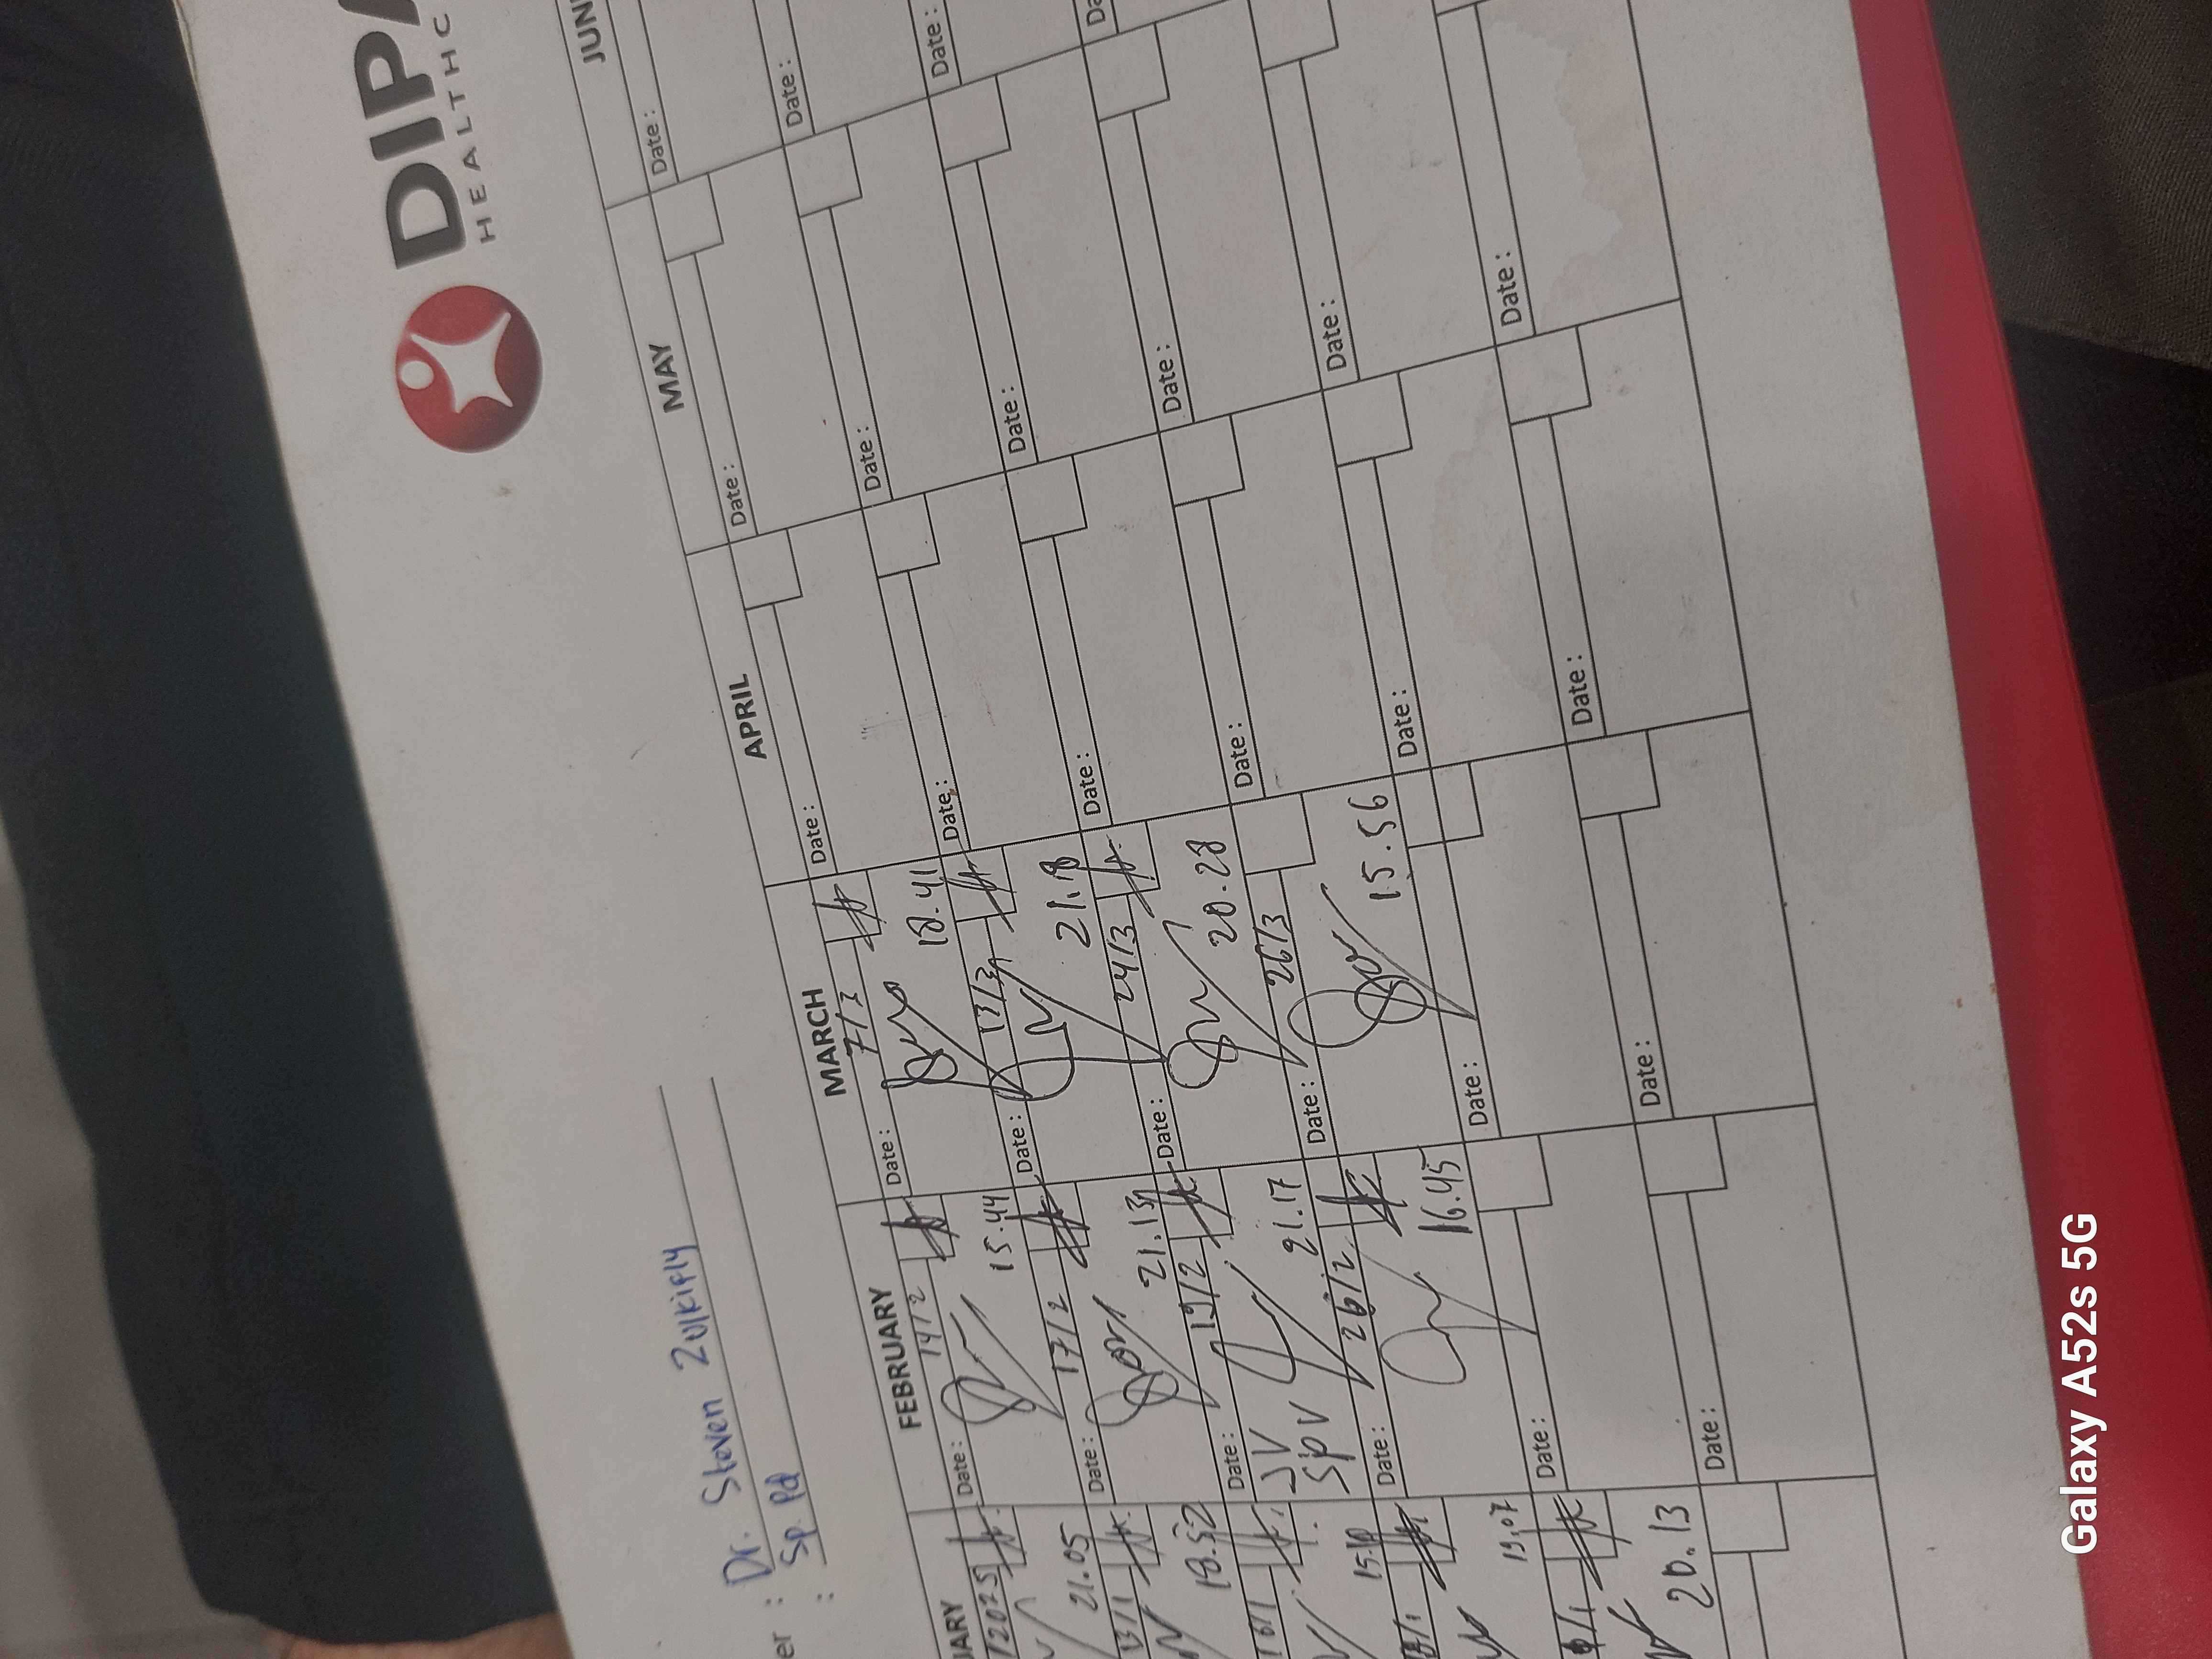 DIPA
HEALTHC
er : Dr. Steven Zulkifly
: Sp. Pd
UARY
FEBRUARY
MARCH
APRIL
MAY
JUN
/2025
21.05
Date : 14/2
15.44
Date : 7/3
18.41
Date :
Date :
Date :
13/1
18.52
Date : 17/2
21.13
Date : 13/3
21.18
Date :
Date :
Date :
16/1
Date : 19/2
JV
SPV
21.17
Date : 24/3
20.28
Date :
Date :
Date :
/1
19.07
Date : 26/2
16.45
Date : 26/3
15.56
Date :
Date :
Da
/1
20.13
Date :
Date :
Date :
Date :
Date :
Date :
Date :
Date :
Galaxy A52s 5G